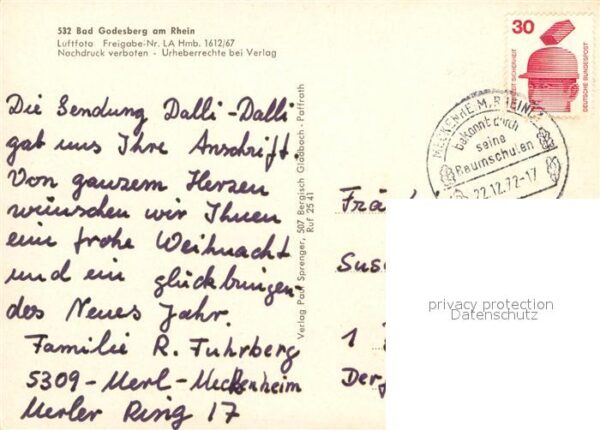 532 Bad Godesberg am Rhein
Luftfoto Freigabe-Nr. LA Hmb. 1612/67
Nachdruck verboten - Urheberrechte bei Verlag
Die Sendung Dalli-Dalli
gab uns Ihre Anschrift.
Von ganzem Herzen
wünschen wir Ihnen
eine frohe Weihnacht
und ein glückbringen-
des Neues Jahr.
Familie R. Fuhrberg
5309-Merl-Meckenheim
Merler Ring 17
Verlag Paul Sprenger, 507 Bergisch Gladbach-Paffrath
Ruf 2541
30
DEUTSCHE BUNDESPOST
MECKENHEIM, RHEINL
bekannt durch
seine
Baumschulen
22.12.72-17
Frä
Sus
1
Der
privacy protection
Datenschutz